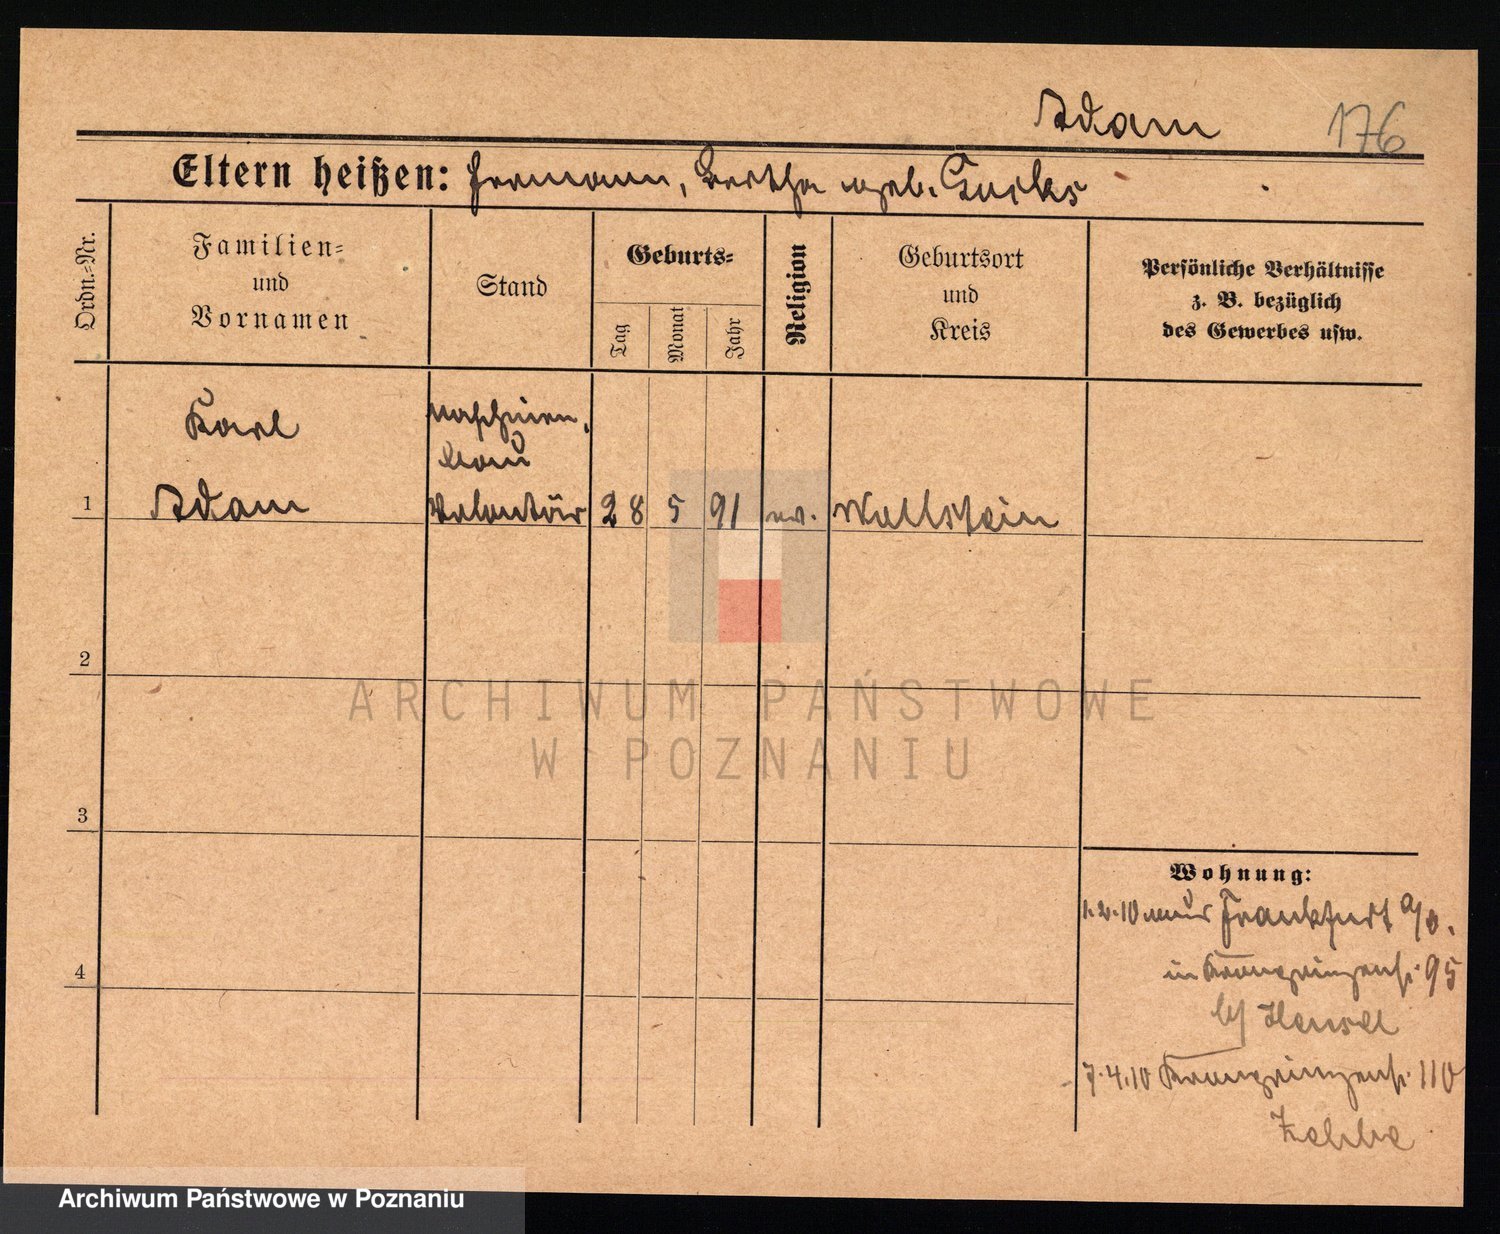 Adam 176
Eltern heißen: Hermann, Bertha geb.
Ordn.=Nr.
Familien=
und
Vornamen
Stand
Geburts=
Tag
Monat
Jahr
Religion
Geburtsort
und
Kreis
Persönliche Verhältnisse
z. B. bezüglich
des Gewerbes usw.
Karl
Maschinen
bau
1 Adam Volontär 28 5 91 ev. Wollstein
2
ARCHIWUM PAŃSTWOWE
W POZNANIU
3
Wohnung:
1.2.10 Frankfurt a/O.
4
in Kronprinzenstr. 95
b/ Hensel
7.4.10 Kronprinzenstr. 110
Archiwum Państwowe w Poznaniu